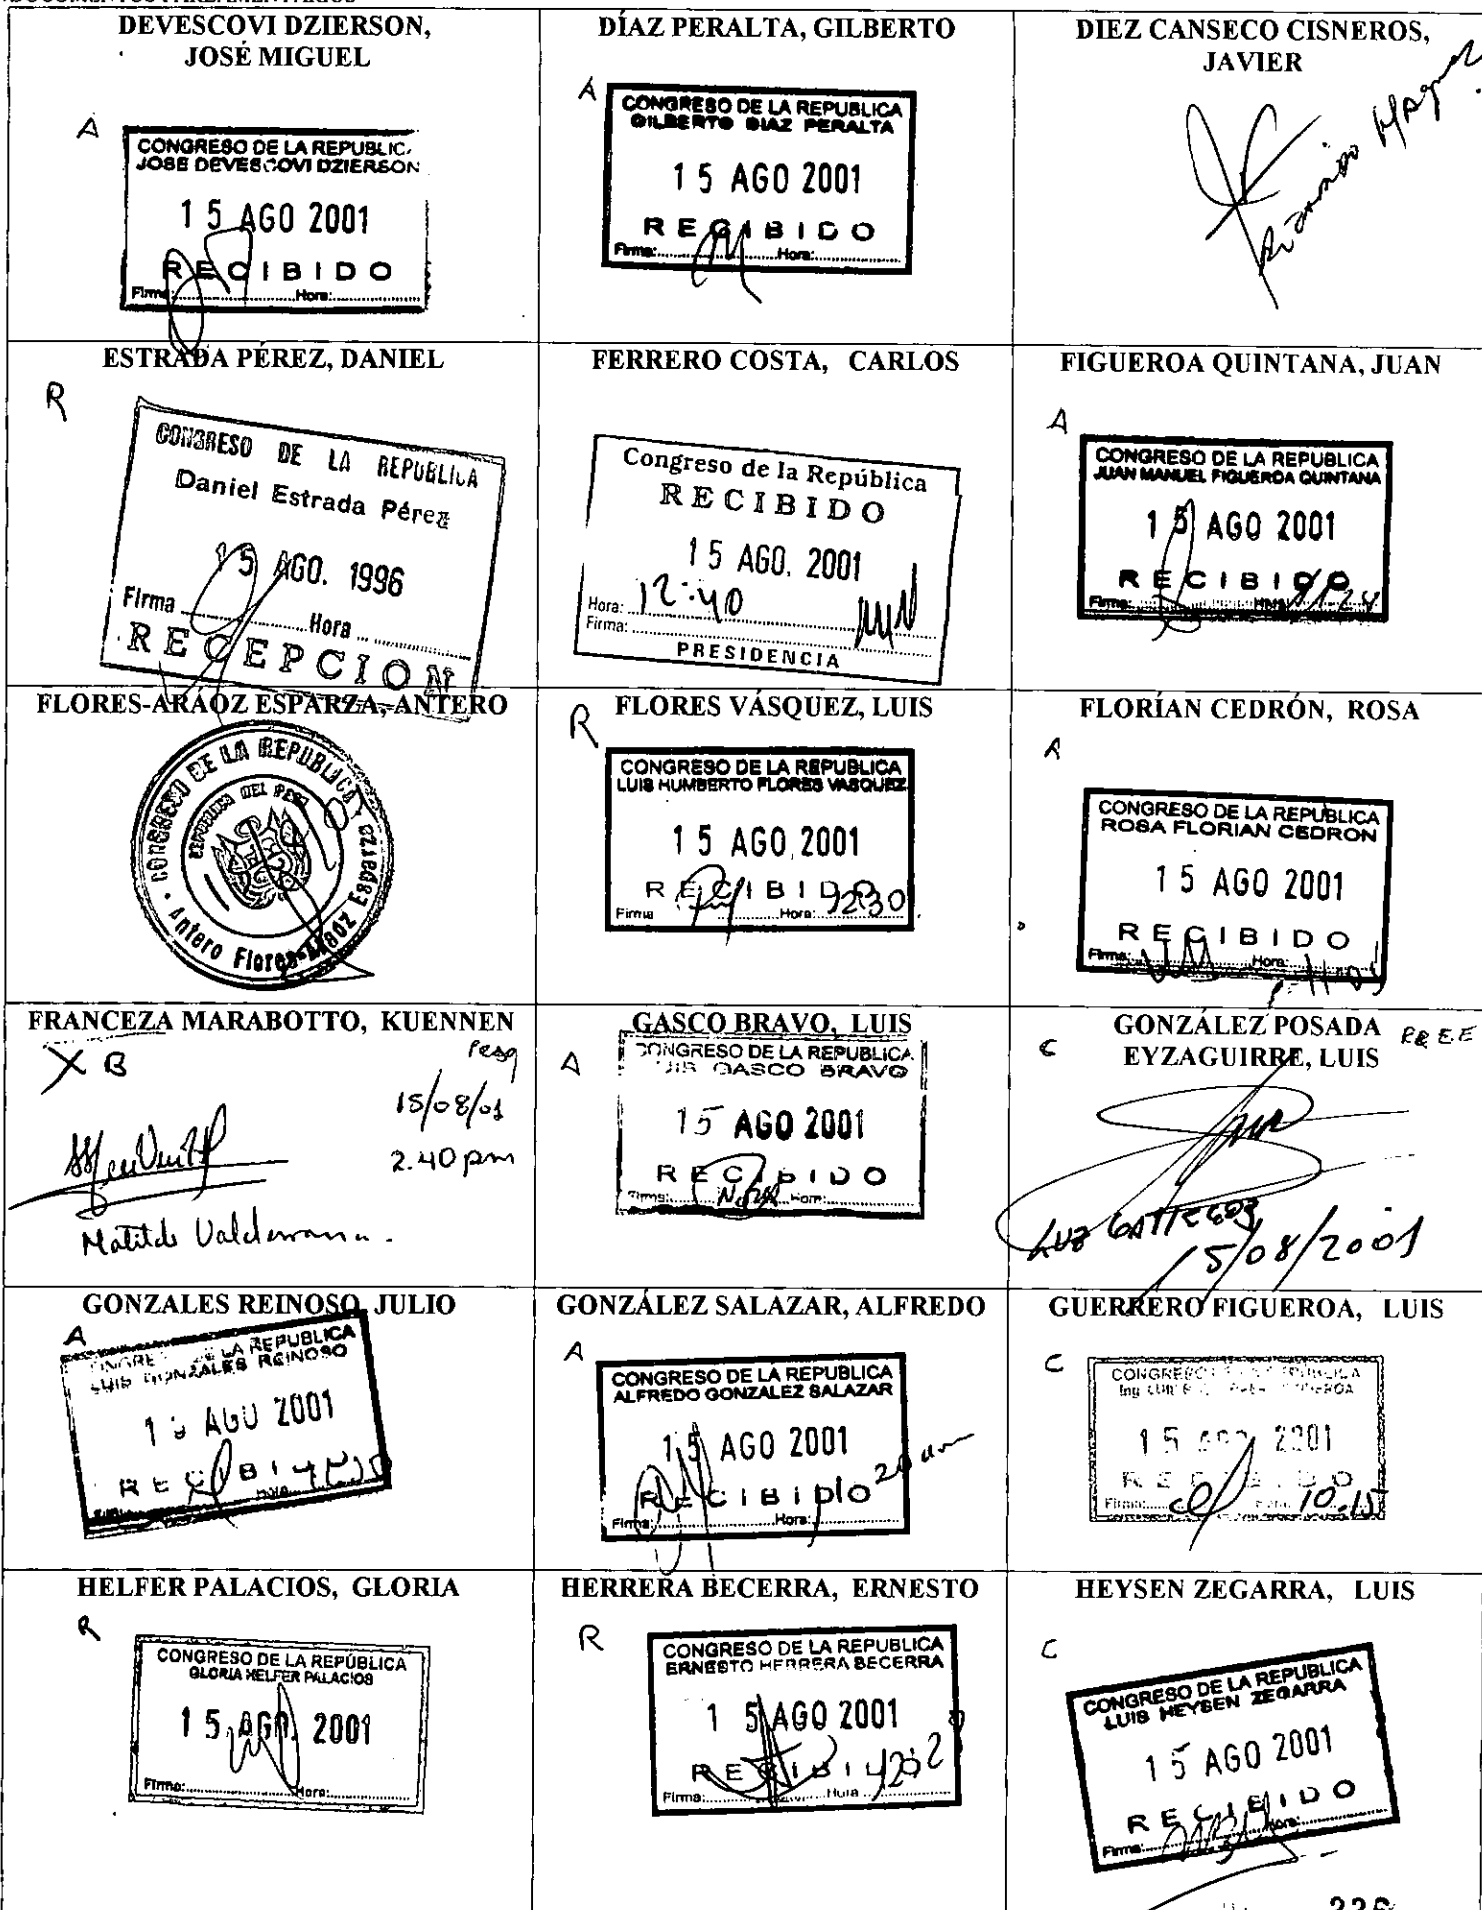 DEVESCOVI DZIERSON,
JOSÉ MIGUEL
A
CONGRESO DE LA REPUBLIC
JOSE DEVESCOVI DZIERSON
15 AGO 2001
RECIBIDO
Firma: Hora:
DÍAZ PERALTA, GILBERTO
A
CONGRESO DE LA REPUBLICA
GILBERTO DIAZ PERALTA
15 AGO 2001
RECIBIDO
Firma: Hora:
DIEZ CANSECO CISNEROS,
JAVIER
ESTRADA PÉREZ, DANIEL
R
CONGRESO DE LA REPUBLICA
Daniel Estrada Pérez
15 AGO. 1996
Firma Hora
RECEPCION
FERRERO COSTA, CARLOS
Congreso de la República
RECIBIDO
15 AGO. 2001
Hora: 12:40
Firma:
PRESIDENCIA
FIGUEROA QUINTANA, JUAN
A
CONGRESO DE LA REPUBLICA
JUAN MANUEL FIGUEROA QUINTANA
15 AGO 2001
RECIBIDO
Firma: Hora:
FLORES-ARÁOZ ESPARZA, ANTERO
CONGRESO DE LA REPUBLICA
REPUBLICA DEL PERU
Antero Flores-Araoz Esparza
FLORES VÁSQUEZ, LUIS
R
CONGRESO DE LA REPUBLICA
LUIS HUMBERTO FLORES VASQUEZ
15 AGO 2001
RECIBIDO
Firma Hora: 12:30
FLORÍAN CEDRÓN, ROSA
A
CONGRESO DE LA REPUBLICA
ROSA FLORIAN CEDRON
15 AGO 2001
RECIBIDO
Firma: Hora:
FRANCEZA MARABOTTO, KUENNEN
X B
Pesq
15/08/01
2.40 pm
Matilde Valderrama.
GASCO BRAVO, LUIS
A
CONGRESO DE LA REPUBLICA
LUIS GASCO BRAVO
15 AGO 2001
RECIBIDO
Firma: Hora:
GONZÁLEZ POSADA
EYZAGUIRRE, LUIS
C
RR EE
15/08/2001
GONZALES REINOSO, JULIO
A
CONGRESO DE LA REPUBLICA
LUIS GONZALES REINOSO
15 AGO 2001
RECIBI
GONZÁLEZ SALAZAR, ALFREDO
A
CONGRESO DE LA REPUBLICA
ALFREDO GONZALEZ SALAZAR
15 AGO 2001
RECIBIDO
Firma: Hora:
GUERRERO FIGUEROA, LUIS
C
CONGRESO REPUBLICA
15 2001
Firma: 10.15
HELFER PALACIOS, GLORIA
R
CONGRESO DE LA REPÚBLICA
GLORIA HELFER PALACIOS
15 AGO. 2001
Firma: Hora:
HERRERA BECERRA, ERNESTO
R
CONGRESO DE LA REPUBLICA
ERNESTO HERRERA BECERRA
15 AGO 2001
RECIBI
Firma: Hora
HEYSEN ZEGARRA, LUIS
C
CONGRESO DE LA REPUBLICA
LUIS HEYSEN ZEGARRA
15 AGO 2001
RECIBIDO
Firma: Hora: